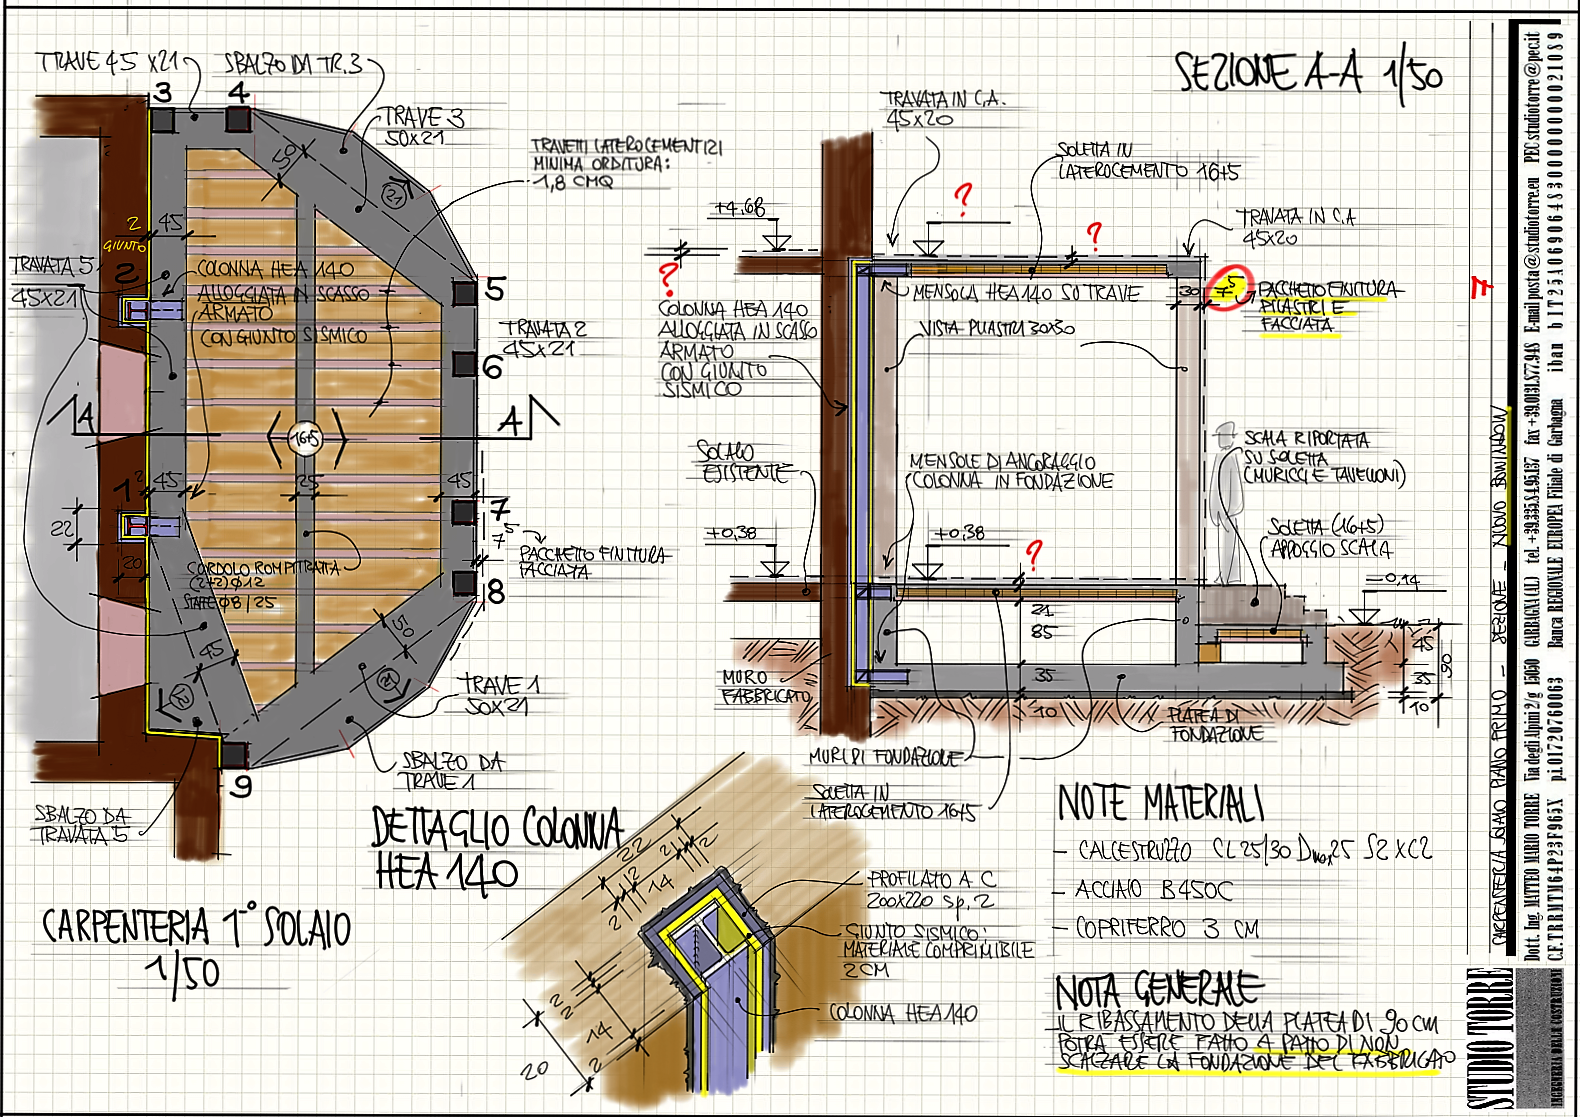 TRAVE 45 x21
SBALZO DA TR.3
3
4
TRAVE 3
50x21
50
21
TRAVETTI LATEROCEMENTIZI
MINIMA ORDITURA:
1,8 CMQ
2
GIUNTO
45
TRAVATA 5
45x21
2
COLONNA HEA 140
ALLOGGIATA IN SCASSO
ARMATO
CON GIUNTO SISMICO
5
TRAVATA 2
45x21
6
A
A
16+5
1
2
45
25
45
22
20
7
7 5
PACCHETTO FINITURA
FACCIATA
8
CORDOLO ROMPITRATTA
(2+2)Ø12
STAFFE Ø8/25
50
45
21
21
TRAVE 1
50x21
SBALZO DA
TRAVE 1
9
SBALZO DA
TRAVATA 5
CARPENTERIA 1° SOLAIO
1/50
DETTAGLIO COLONNA
HEA 140
22
2
2
14
2
2
2
14
2
20
PROFILATO A C
200x220 sp. 2
GIUNTO SISMICO:
MATERIALE COMPRIMIBILE
2 CM
COLONNA HEA 140
SEZIONE A-A 1/50
TRAVATA IN C.A.
45x20
SOLETTA IN
LATEROCEMENTO 16+5
TRAVATA IN C.A
45x20
+4,68
?
?
?
MENSOLA HEA 140 SU TRAVE
30
7 5
PACCHETTO FINITURA
PILASTRI E
FACCIATA
COLONNA HEA 140
ALLOGGIATA IN SCASSO
ARMATO
CON GIUNTO
SISMICO
VISTA PILASTRI 30x30
SOLAIO
ESISTENTE
MENSOLE DI ANCORAGGIO
COLONNA IN FONDAZIONE
SCALA RIPORTATA
SU SOLETTA
(MURICCI E TAVELLONI)
SOLETTA (16+5)
APPOGGIO SCALA
+0,38
+0,38
?
-0,14
21
85
35
10
45
35
10
90
MURO
FABBRICATO
PLATEA DI
FONDAZIONE
MURI DI FONDAZIONE
SOLETTA IN
LATEROCEMENTO 16+5
NOTE MATERIALI
- CALCESTRUZZO CL 25/30 Dmax25 S2 XC2
- ACCIAIO B450C
- COPRIFERRO 3 CM
NOTA GENERALE
IL RIBASSAMENTO DELLA PLATEA DI 90 CM
POTRÀ ESSERE FATTO A PATTO DI NON
SCALZARE LA FONDAZIONE DEL FABBRICATO
CARPENTERIA SOLAIO PIANO PRIMO - SEZIONE - NUOVO BOWINDOW
STUDIO TORRE
INGEGNERIA DELLE COSTRUZIONI
Dott. Ing. MATTEO MARIO TORRE Via degli Alpini 2/g 15050 GARBAGNA (AL) tel. +39.335.84.95.137 fax +39.0131.877.948 E-mail posta@studiotorre.eu PEC studiotorre@pec.it
C.F. TRRMTM64P23F965X p.i. 01720760063 Banca REGIONALE EUROPEA Filiale di Garbagna